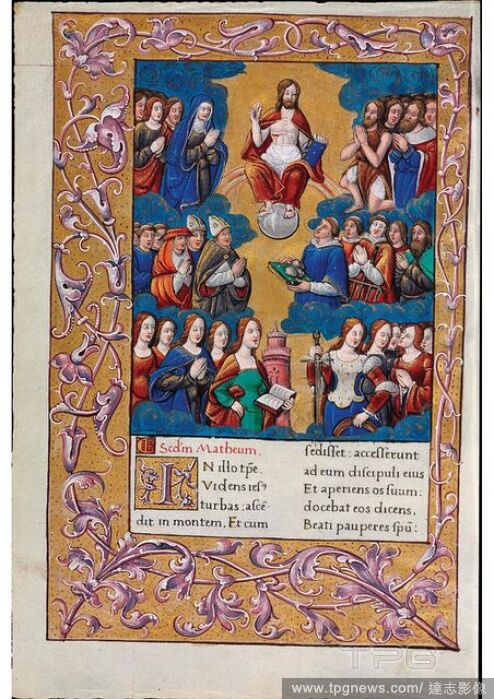 Scd'm Matheum.
IN illo tp̄e.
Videns ies9
turbas: ascē-
dit in montem, Et cum
sedisset: accesserunt
ad eum discipuli eius
Et aperiens os suum:
docebat eos dicens,
Beati pauperes spū:
TPG
www.tpgnews.com/ 達志影像